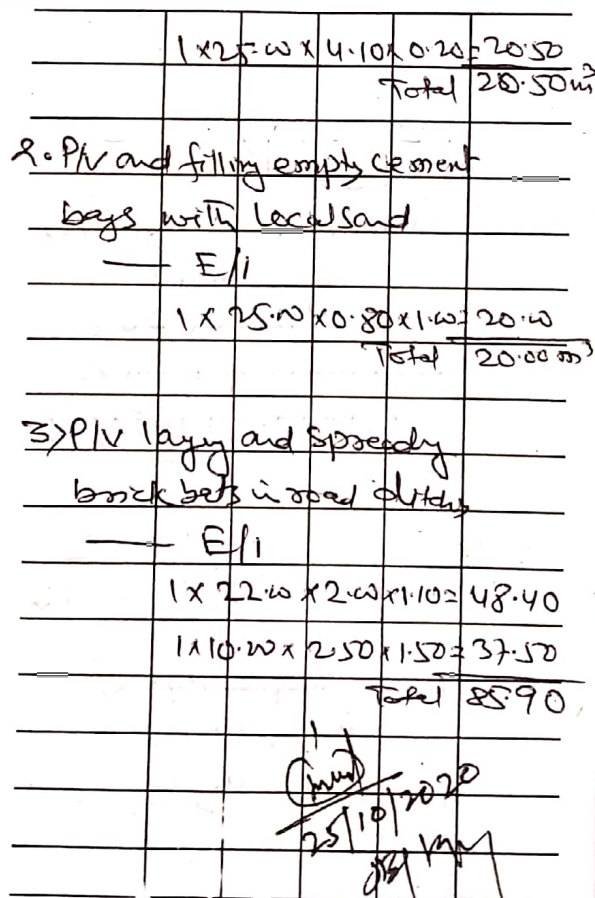 1 x 25.00 x 4.10 x 0.20 = 20.50
Total 20.50 m³
2. P/V and filling empty cement
bags with Local sand
— E/i
1 x 25.00 x 0.80 x 1.00 = 20.00
Total 20.00 m³
3> P/V laying and Spreading
brick bats in road ditches
— E/i
1 x 22.00 x 2.00 x 1.10 = 48.40
1 x 10.00 x 2.50 x 1.50 = 37.50
Total 85.90
25/10/2020